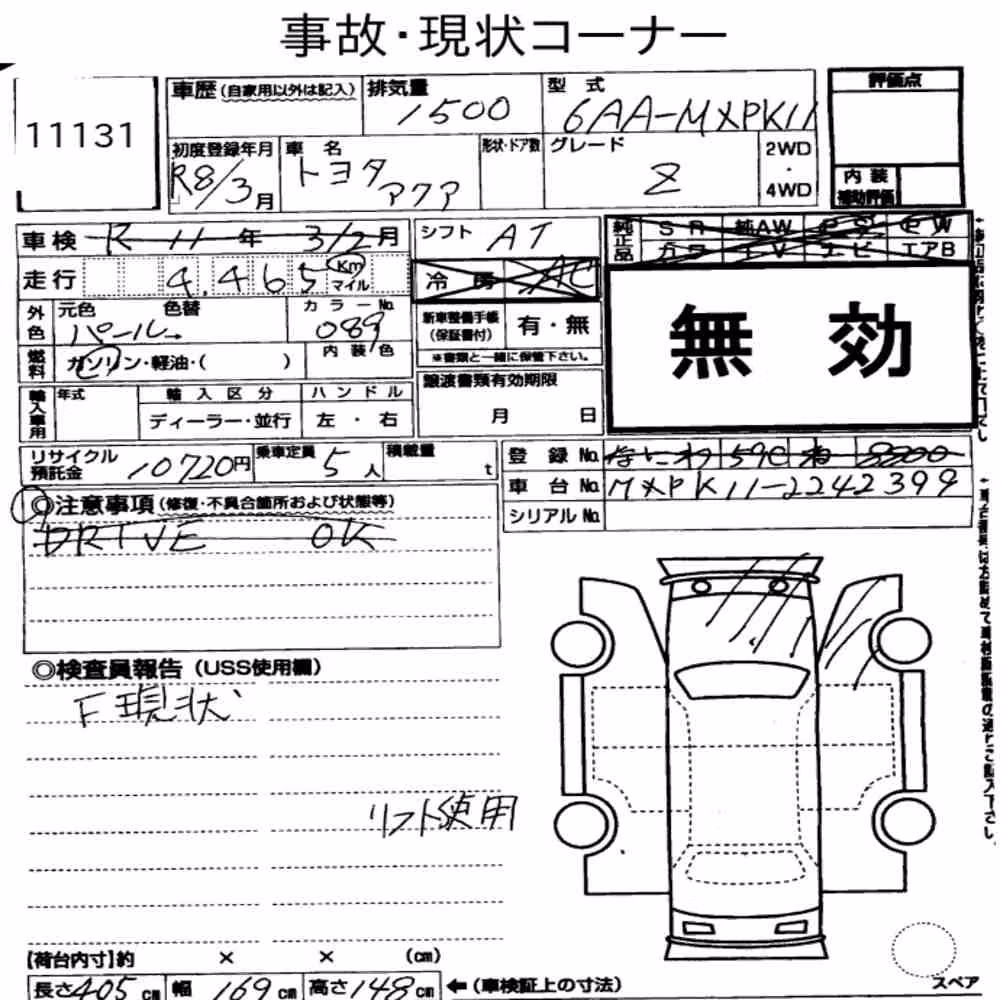 事故・現状コーナー
11131
車歴(自家用以外は記入)
排気量
1500
型式
6AA-MXPK11
評価点
初度登録年月
R8/3月
車名
トヨタ
アクア
形状・ドア数
グレード
Z
2WD
・
4WD
内装
補助評価
車検 R 11 年 3/2 月
シフト AT
純正品
SR 純AW PS PW
カワ TV ナビ エアB
走行 4,465 Km マイル
冷房 AC
外色
元色 色替
パール
カラーNo.
089
新車整備手帳
(保証書付)
有・無
※書類と一緒に保管下さい。
無効
燃料
ガソリン・軽油・( )
内装色
輸入車用
年式
輸入区分
ディーラー・並行
ハンドル
左・右
譲渡書類有効期限
月 日
リサイクル
預託金
10720円
乗車定員
5人
積載量
t
登録No. なにわ 590 ね 8800
車台No. MXPK11-2242399
シリアルNo.
◎注意事項(修復・不具合箇所および状態等)
DRIVE OK
◎検査員報告(USS使用欄)
F現状
リフト使用
【荷台内寸】約 × × (cm)
長さ405cm 幅169cm 高さ148cm ←(車検証上の寸法)
スペア